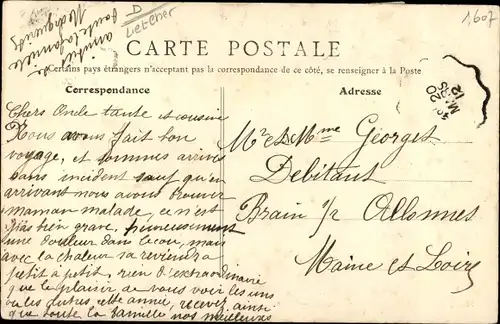 1,607
D
Letcher
amitié de
toute la famille
CARTE POSTALE
Certains pays étrangers n'acceptent pas la correspondance de ce côté, se renseigner à la Poste
Correspondance
Adresse
Chers Oncle tante et cousine
Nous avons fait bon
voyage, et sommes arrivé
sans incident sauf qu'en
arrivant nous avons trouver
maman malade, ce n'est
pas bien grave, heureusement
une douleur dans le cou, mais
avec la chaleur sa reviendra
petit à petit, rien d'extraordinaire
que le plaisir de vous voir les uns
ou les autres cette année, recevez ainsi
que toute la famille nos meilleures
Mr et Mme Georges
Debitant
Brain s/ Allonnes
Maine et Loire
20